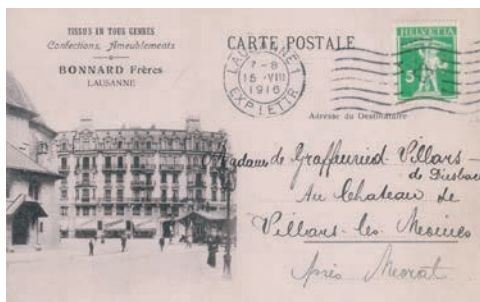 TISSUS EN TOUS GENRES
Confections, Ameublements
BONNARD Frères
LAUSANNE
CARTE POSTALE
LAUSANNE 1
7-8
15 · VIII
1916
EXP. LETTR.
HELVETIA
5
Adresse du Destinataire
Madame de Graffenried-Villars-
de Diesbach
Au Chateau de
Villars-les-Moines
près Morat